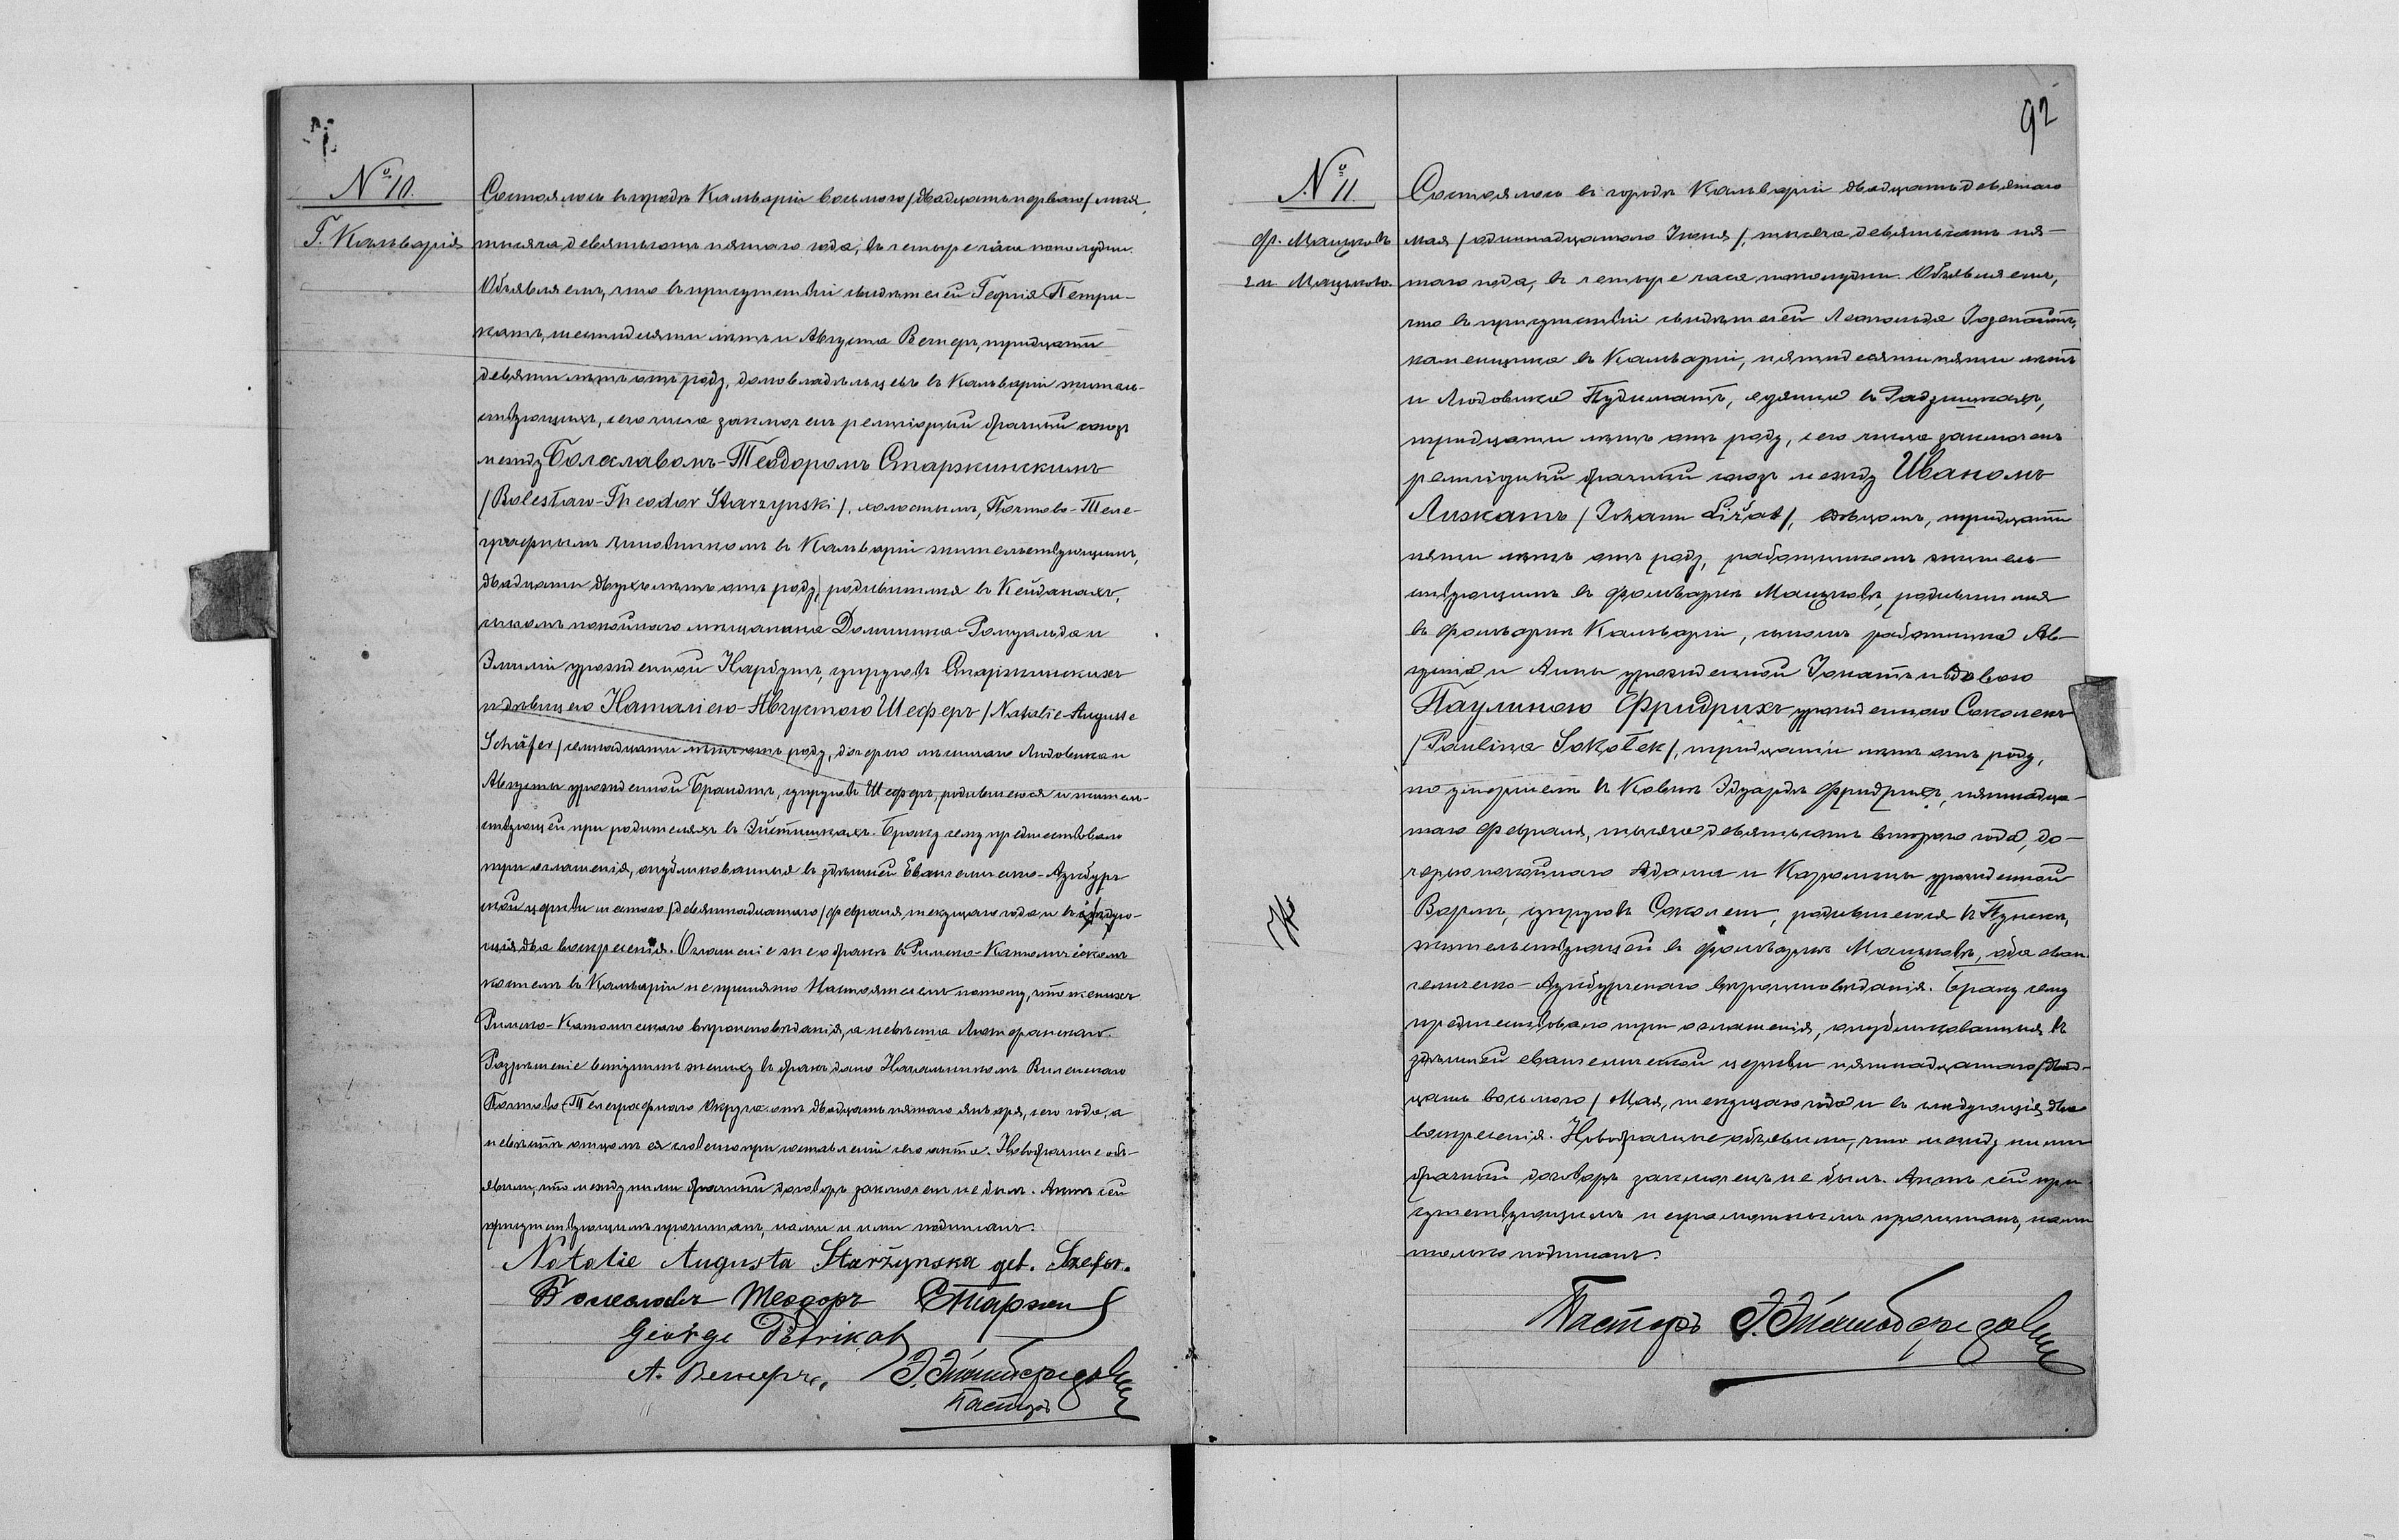 № 10.
Г. Кальварія
Состоялось въ городѣ Кальваріи восьмого /двадцать перваго/ мая,
тысяча девятьсотъ пятаго года, въ четыре часа пополудни.
Объявляемъ, что въ присутствіи свидѣтелей Георгія Петри-
катъ, шестидесяти лѣтъ и Августа Венгеръ, тридцати
девяти лѣтъ отъ роду, домовладѣльцевъ въ Кальваріи житель-
ствующихъ, сего числа заключенъ религіозный брачный союзъ
между Болеславомъ-Теодоромъ Старжинскимъ
/Bolesław-Theodor Starzynski/, холостымъ, Почтово-Теле-
графнымъ чиновникомъ въ Кальваріи жительствующимъ,
двадцати двухъ лѣтъ отъ роду, родившимся въ Кейданахъ,
сыномъ покойнаго мѣщанина Доминика-Ромуальда и
Эмиліи урожденной Нарбутъ, супруговъ Старжинскихъ
и дѣвицею Наталіею-Августою Шеферъ /Natalie-Auguste
Schäfer/ семнадцати лѣтъ отъ роду, дочерью Людовика и
Августы урожденной Брандтъ, супруговъ Шеферъ, родившеюся и житель-
ствующей при родителяхъ въ Браку сему предшествовало
три оглашенія, опубликованныя въ здѣшней Евангелическо-Аугсбург-
ской церкви шестого /девятнадцатаго/ февраля, текущаго года и въ слѣдую-
щія два воскресенія. Оглашеніе же о бракѣ въ Римско-Католическомъ
костелѣ въ Кальваріи не принято Настоятелемъ потому, что женихъ
Римско-Католическаго вѣроисповѣданія, а невѣста Лютеранскаго.
Разрѣшеніе вступить жениху въ бракъ дано Начальникомъ Виленскаго
Почтово-Телеграфнаго Округа отъ двадцать пятаго января, сего года, а
невѣстѣ отцомъ ея словесно при составленіи сего акта. Новобрачные объ-
явили, что между ними брачный договоръ заключенъ не былъ. Актъ сей
присутствующимъ прочитанъ, нами и ими подписанъ.
Natalie Augusta Starżynska geb. Szefer.
Болеславъ Теодоръ Старжин
George Petrikat
А. Венгеръ,
Пасторъ
92
№ 11
ф. Мацковъ
гм. Мацьково.
Состоялось въ городѣ Кальваріи двадцать девятаго
мая /одиннадцатаго Іюня/, тысяча девятьсотъ пя-
таго года, въ четыре часа пополудни. Объявляемъ,
что въ присутствіи свидѣтелей Леопольда
каменщика въ Кальваріи, пятидесяти пяти лѣтъ
и Людовика въ
тридцати лѣтъ отъ роду, сего числа заключенъ
религіозный брачный союзъ между Иваномъ
Лизкатъ /Johann Ližat/, вдовцомъ, тридцати
пяти лѣтъ отъ роду, работникомъ житель-
ствующимъ въ фольваркѣ Мацьковѣ, родившимся
въ фольваркѣ Кальваріи, сыномъ работника Ав-
густа и Анны урожденной Іонатъ и вдовою
Паулиною Фридрихъ урожденною Соколекъ
/Paulina Sokołek/, тридцати лѣтъ отъ роду,
по умершемъ въ Ковнѣ Эдуардѣ Фридрихъ, пятнадца-
таго Февраля, тысяча девятьсотъ второго года, до-
черью покойнаго Адама и Каролины урожденной
супруговъ Соколекъ, родившеюся въ Пунскѣ,
жительствующей въ фольваркѣ Мацьковѣ, оба еван-
гелическо-Аугсбургскаго вѣроисповѣданія. Браку сему
предшествовало три оглашенія, опубликованныя въ
здѣшней евангелической церкви пятнадцатаго /двад-
цать восьмого/ Мая, текущаго года и въ слѣдующія два
воскресенія. Новобрачные объявили, что между ними
брачный договоръ заключенъ не былъ. Актъ сей при-
сутствующимъ неграмотнымъ прочитанъ, нами
только подписанъ.
Пасторъ